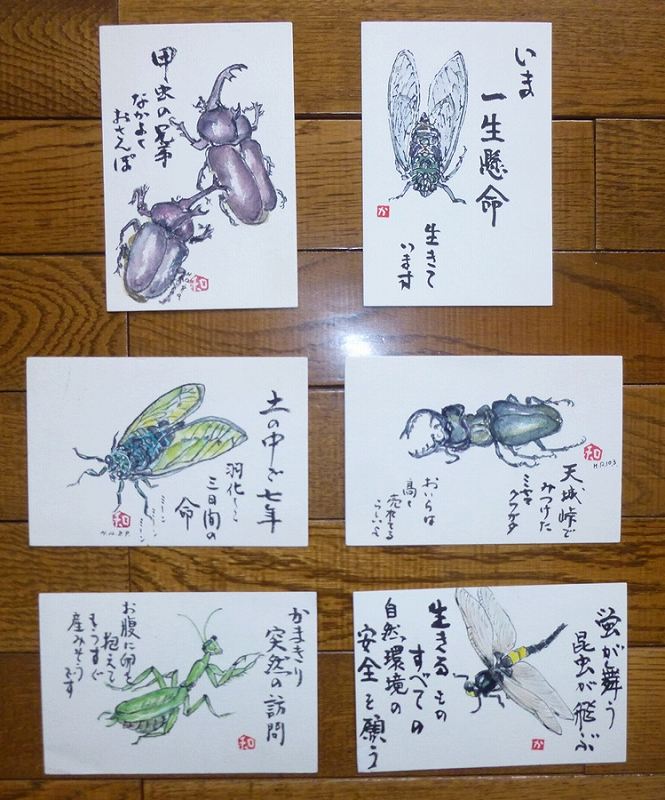 甲虫の兄弟
なかよく
おさんぽ
和
いま
一生懸命
生きて
います
か
土の中で七年
羽化して
三日間の
命
ミーン
ミーン
ミーン
和
天城峠で
みつけた
ミヤマ
クワガタ
おいらは
高く
売れてる
らしいよ
和
かまきり
突然の訪問
お腹に卵を
抱えて
もうすぐ
産みそう
です
和
蛍が舞う
昆虫が飛ぶ
生きるもの
すべての
自然環境の
安全を願う
か